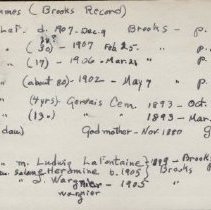 ames (Brooks Record)
d. 1907-Dec. 9 Brooks - p.
(30) - 1907 Feb 25. "
" (17) - 1906 - Mar. 21 " p.
(about 80) - 1902 - May 7 " p.
(4 yrs) Gervais Cem. 1893 - Oct.
(13.) " 1893 - Mar.
dau) Godmother - Nov. 1880
" m. Ludwig LaFontaine 1889 - Brooks
Heromine b. 1905 Brooks
" d. Wargnier - 1905 "
wargnier